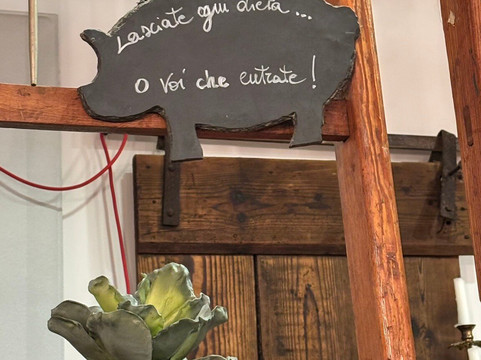 Lasciate ogni dieta...
o voi che entrate!